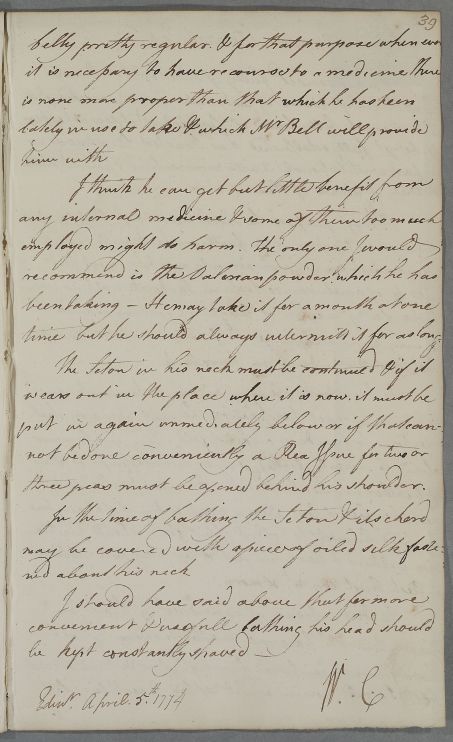 39
belly pretty regular & for that purpose when ever
it is necessary to have recourse to a medicine there
is none more proper than that which he has been
lately in use to take & which Mr Bell will provide
him with
I think he can get but little benefit from
any internal medicine & some of them too much
employed might do harm. The only one I would
recommend is the Valerian powder which he has
been taking – He may take it for a month at one
time but he should always intermitt it for as long.
The Seton in his neck must be continued & if it
wears out in the place where it is now, it must be
put in again immediately below or if that can-
not be done conveniently a Pea Issue for two or
three peas must be opened behind his shoulder.
In the time of bathing the Seton & its chord
may be covered with a piece of oiled silk faste-
ned about his neck
I should have said above that for more
convenient & usefull bathing his head should
be kept constantly shaved –
W. C.
Edinr. April. 5.th 1774